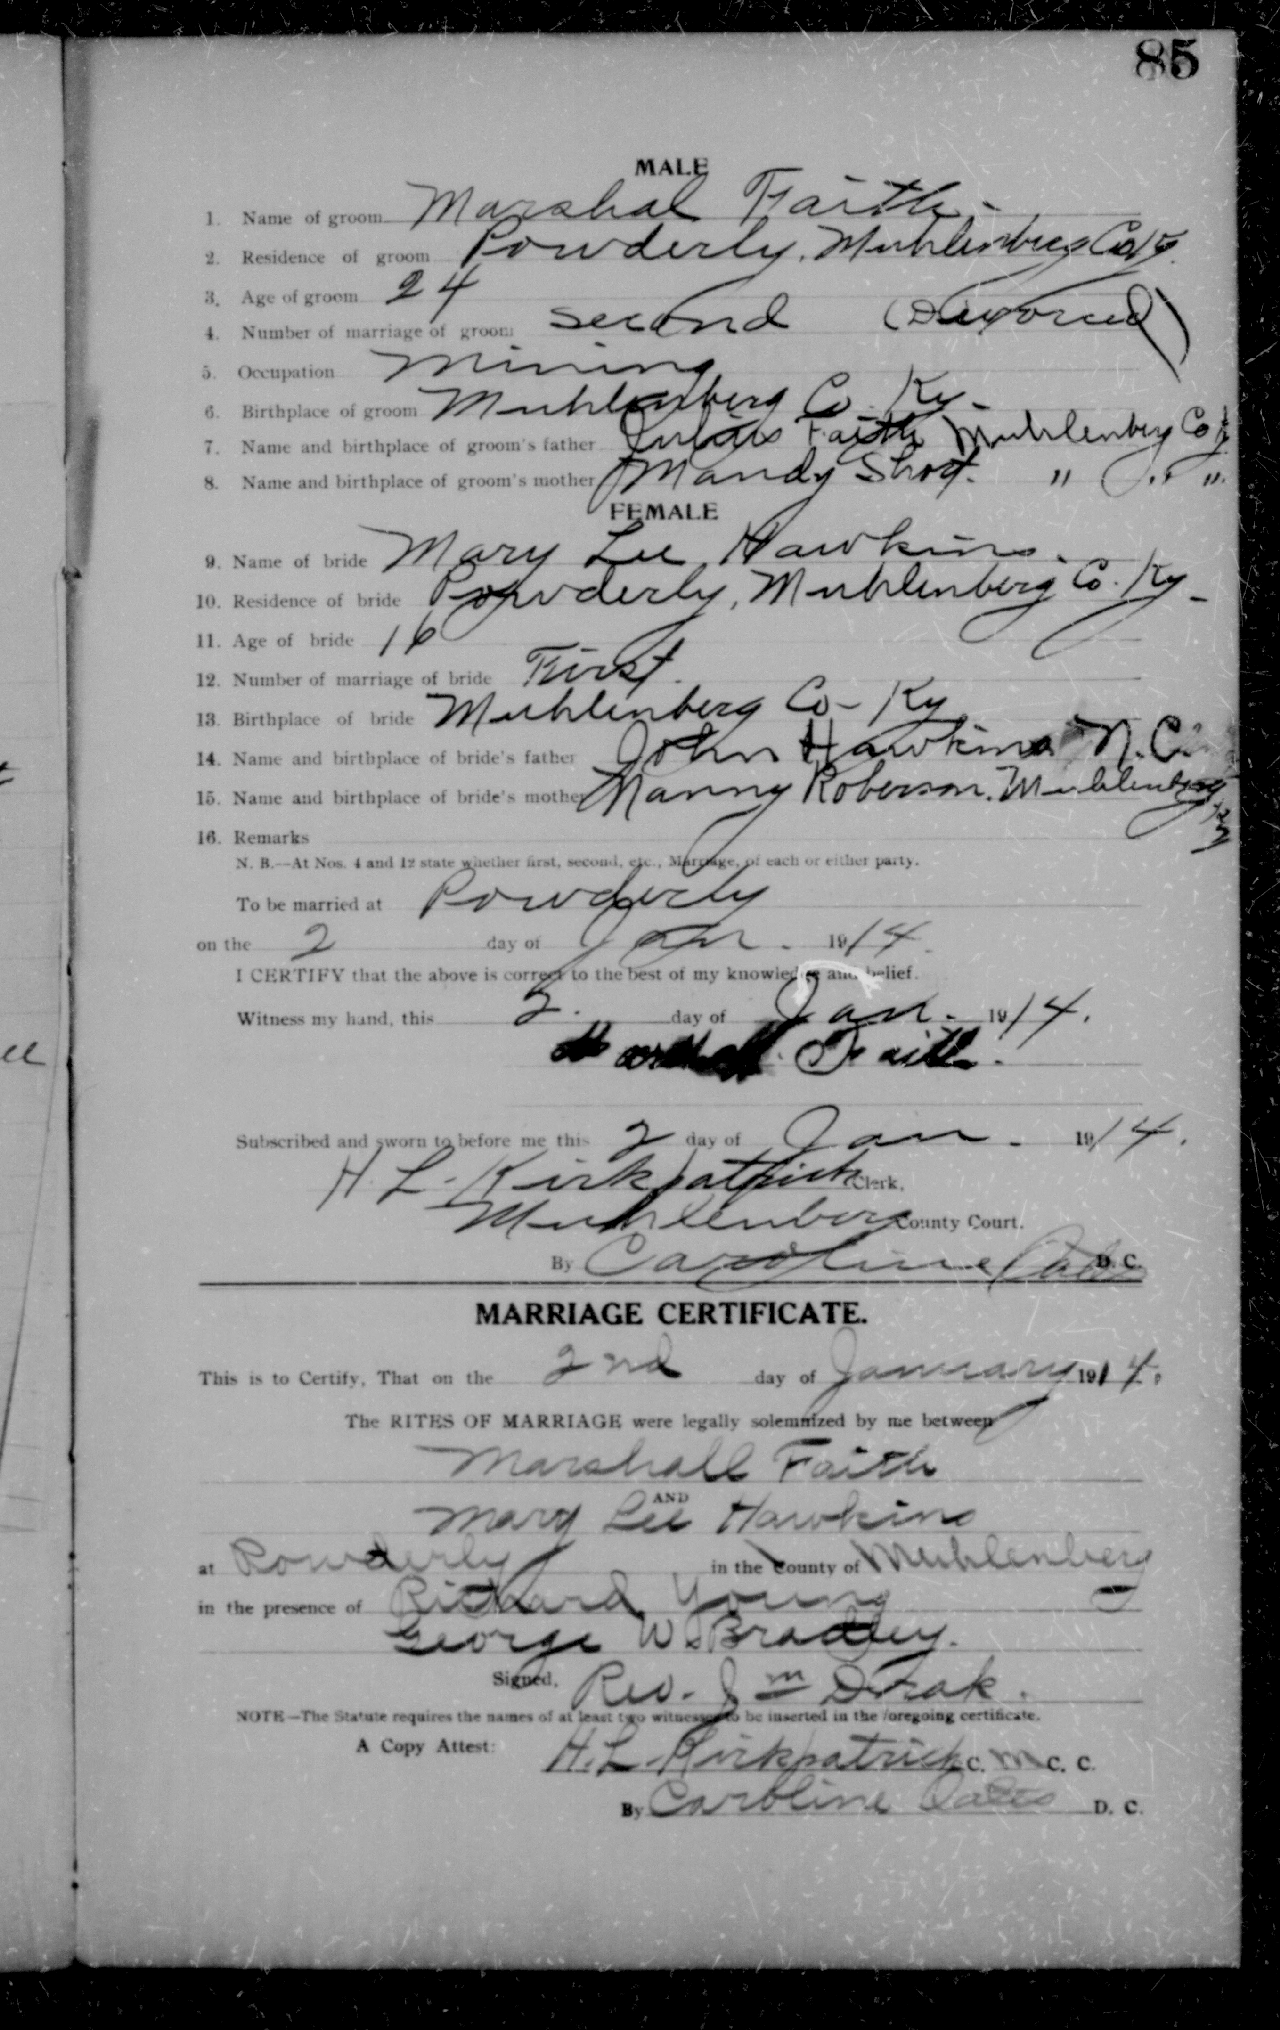 85
MALE
1. Name of groom Marshal Faith
2. Residence of groom Powderly, Muhlenberg Co Ky.
3. Age of groom 24
4. Number of marriage of groom second (Divorced)
5. Occupation Mining
6. Birthplace of groom Muhlenberg Co. Ky.
7. Name and birthplace of groom's father Faith Muhlenberg Co Ky
8. Name and birthplace of groom's mother Mandy " " "
FEMALE
9. Name of bride Mary Lee Hawkins.
10. Residence of bride Powderly, Muhlenberg Co. Ky-
11. Age of bride 16
12. Number of marriage of bride First.
13. Birthplace of bride Muhlenberg Co- Ky
14. Name and birthplace of bride's father John Hawkins N.C.
15. Name and birthplace of bride's mother Nanny Roberson. Muhlenberg Ky
16. Remarks
N. B.—At Nos. 4 and 12 state whether first, second, etc., Marriage, of each or either party.
To be married at Powderly
on the 2 day of Jan. 1914.
I CERTIFY that the above is correct to the best of my knowledge and belief.
Witness my hand, this 2. day of Jan. 1914.
Faith.
Subscribed and sworn to before me this 2 day of Jan. 1914.
H. L. Kirkpatrick Clerk,
Muhlenberg County Court.
By Caroline Oates D. C.
MARRIAGE CERTIFICATE.
This is to Certify, That on the 2nd day of January 1914.
The RITES OF MARRIAGE were legally solemnized by me between
Marshall Faith
AND
Mary Lee Hawkins
at Powderly in the County of Muhlenberg
in the presence of Richard Young
George W. Bradley.
Signed, Rev. J m Drak.
NOTE—The Statute requires the names of at least two witnesses to be inserted in the foregoing certificate.
A Copy Attest: H. L. Kirkpatrick C. M C. C.
By Caroline Oates D. C.